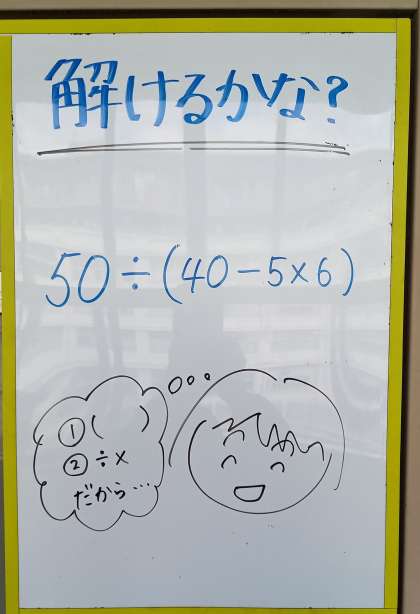 解けるかな?
50÷(40-5×6)
①( )
②÷×
だから…